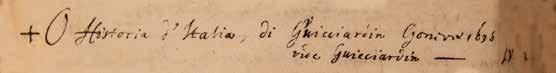 + O Historia d'Italia, di Guicciardin 1636
vide Guicciardin —